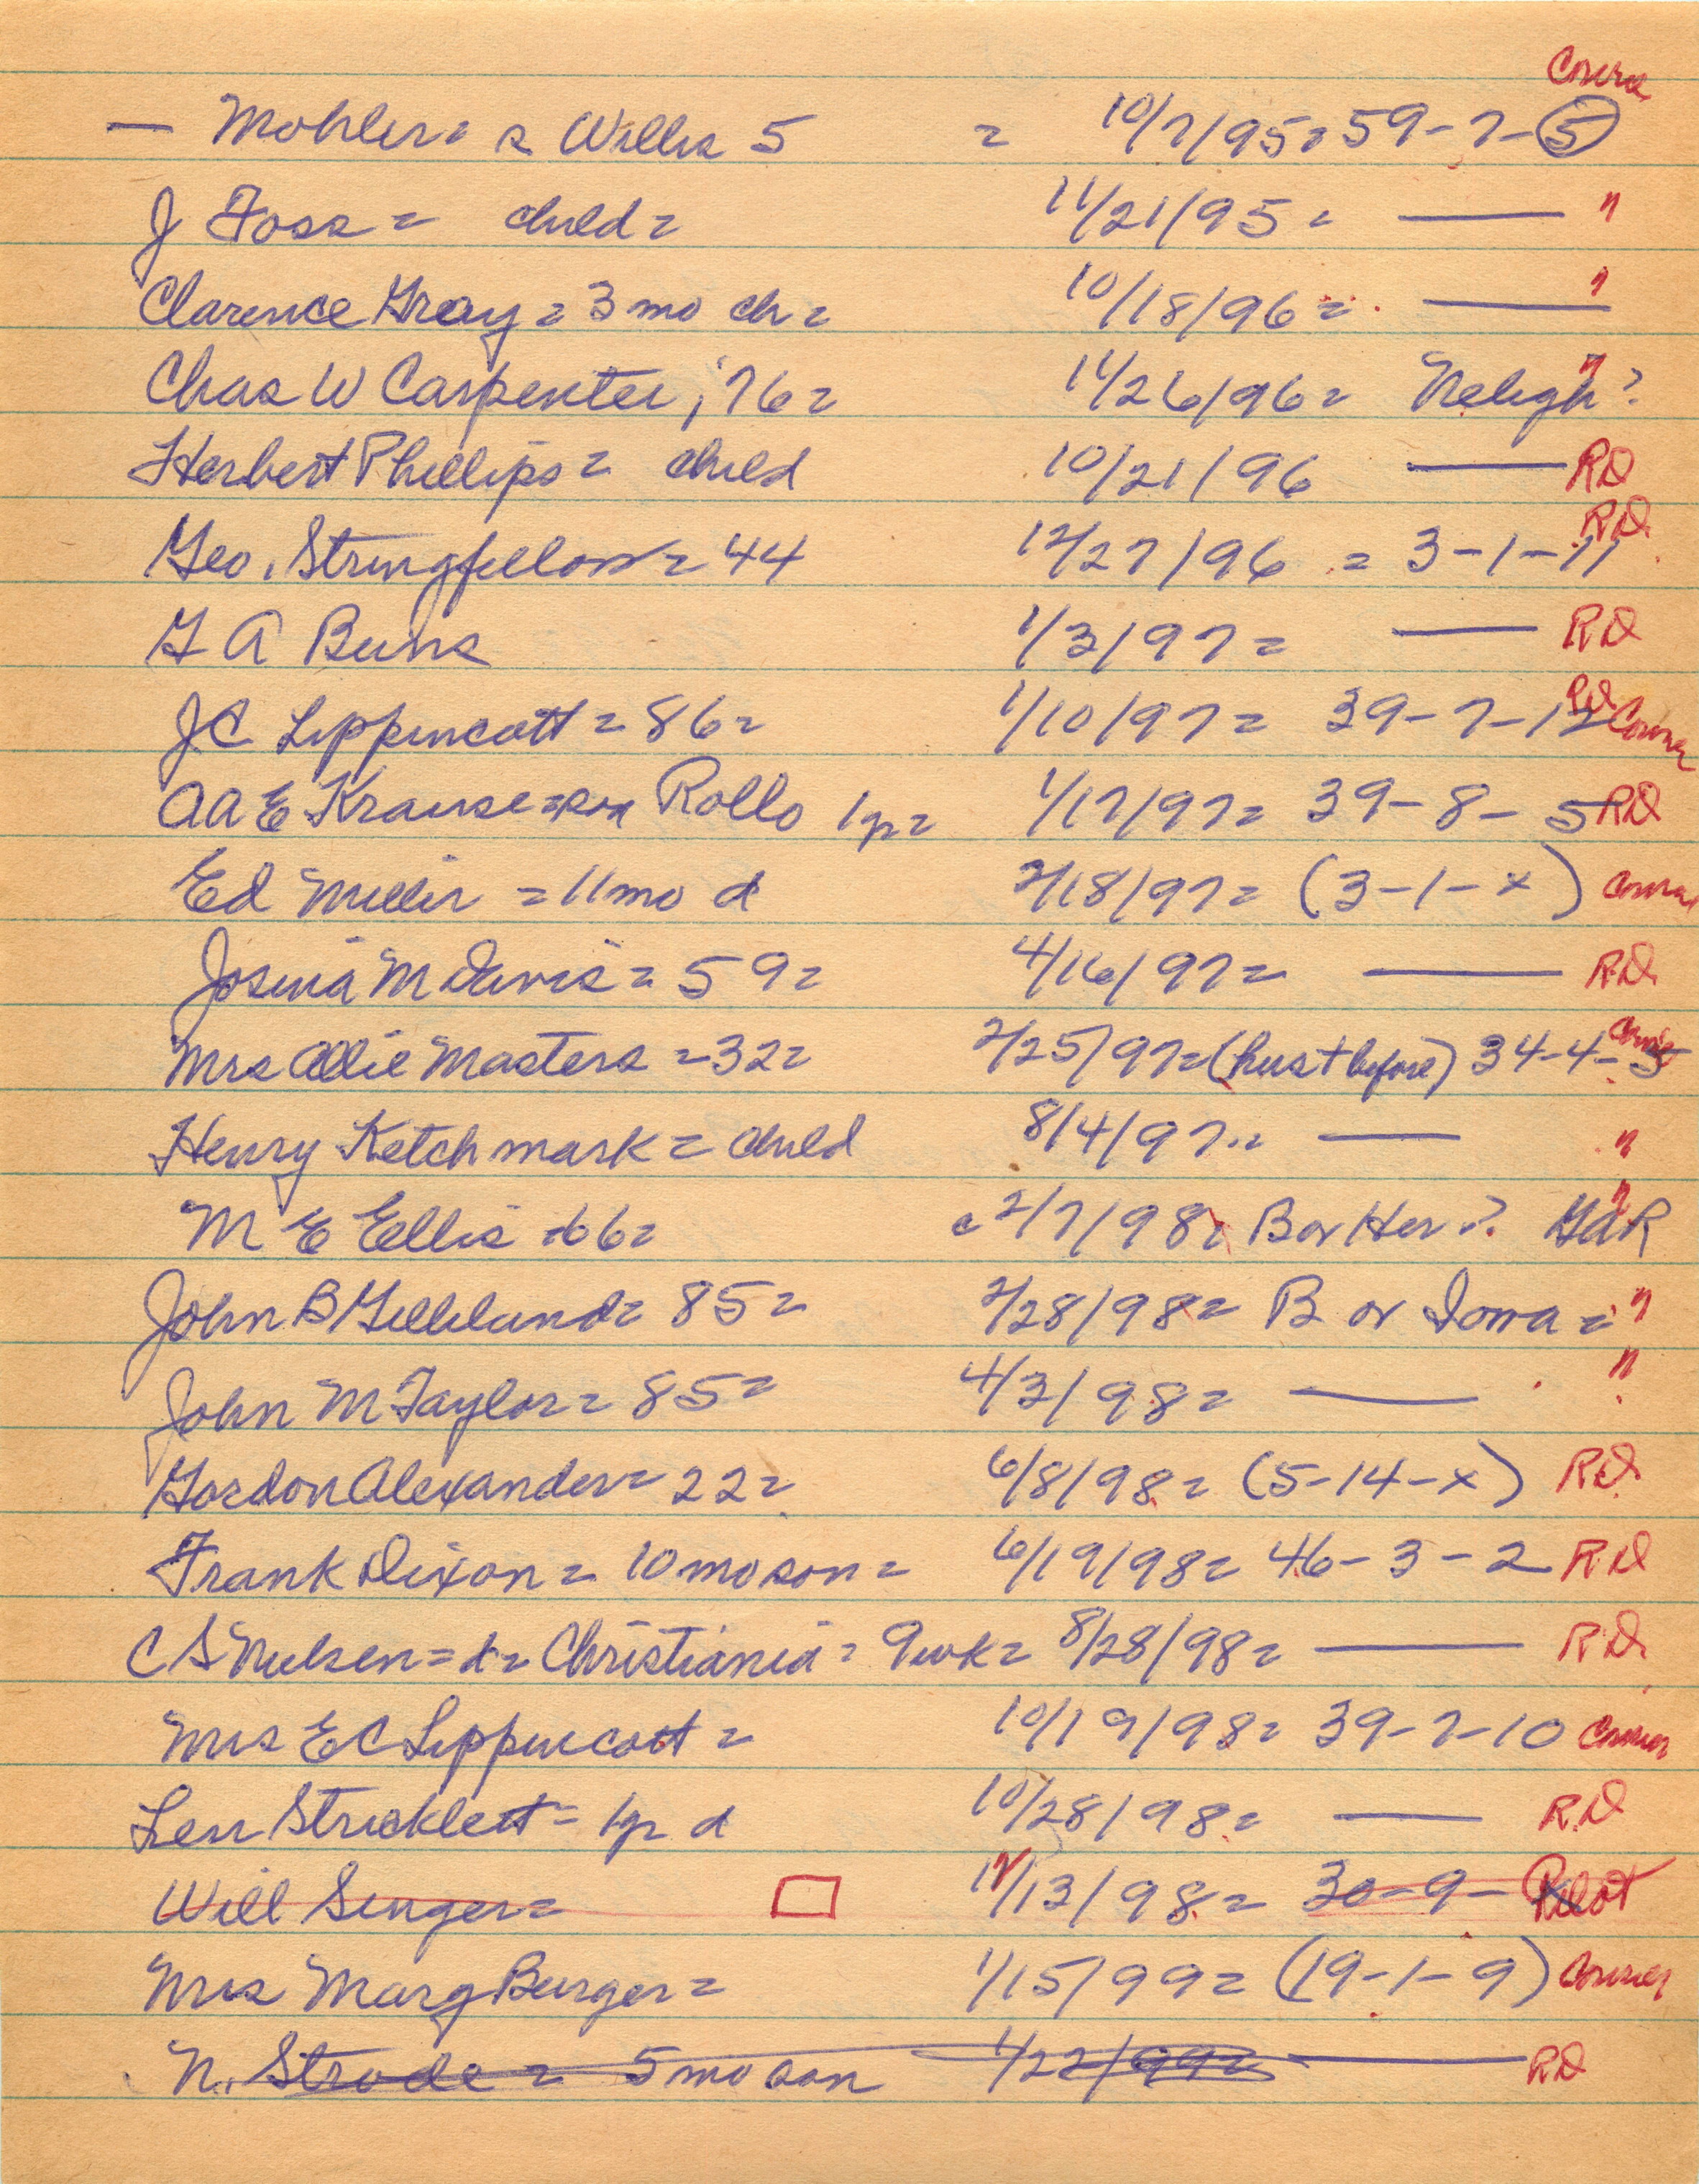 — Mohler = s Willis 5 = 10/7/95 = 59-7-5
J Foss = child = 11/21/95 = — "
Clarence Gray = 3 mo ch = 10/18/96 = — "
Chas W Carpenter, 76 = 11/26/96 = Neligh? "
Herbert Phillips = child 10/21/96 — RD
Geo. Stringfellow = 44 12/27/96 = 3-1-11 RD
G A Buhs 1/3/97 = — RD
J C Lippincott = 86 = 1/10/97 = 39-7-12 RD Courier
A A E Krause = son Rollo 1 yr = 1/17/97 = 39-8-5 RD
Ed Miller = 11 mo d 2/18/97 = (3-1-x) Courier
Josiná M Davis = 59 = 4/16/97 = — RD
Mrs Allie Masters = 32 = 2/25/97 = (hust before) 34-4-5 Courier
Henry Ketchmark = child 8/4/97 = — "
M E Ellis = 66 = c 2/7/98 = B or Her.? GAR "
John B Gilleland = 85 = 2/28/98 = B or Iowa = "
John M Taylor = 85 = 4/3/98 = — "
Gordon Alexander = 22 = 6/8/98 = (5-14-x) RD
Frank Dixon = 10 mo son = 6/19/98 = 46-3-2 RD
C S Nielsen = d = Christiania = 9 wk = 8/28/98 = — RD
Mrs E C Lippincott = 10/19/98 = 39-7-10 Courier
Len Stricklett = 1 yr d 10/28/98 = — RD
Will Singer = 12/13/98 = 30-9- Pilot
Mrs Marg Burger = 1/15/99 = (19-1-9) Courier
N. Strode = 5 mo son 1/22/99 = — RD